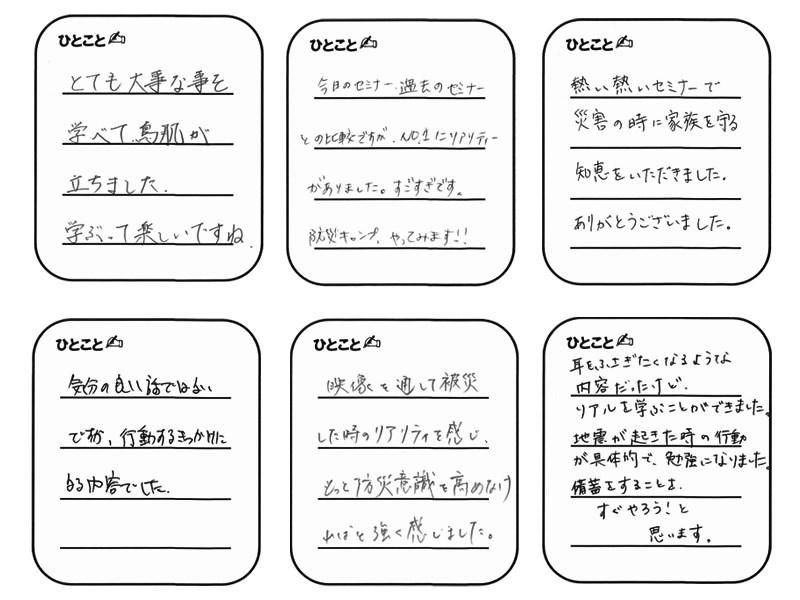 ひとこと
とても大事な事を
学べて、鳥肌が
立ちました。
学ぶって楽しいですね。
ひとこと
今日のセミナー、過去のセミナー
との比較ですが、NO.1にリアリティー
がありました。すごすぎです。
防災キャンプ、やってみます!!
ひとこと
熱い熱いセミナーで
災害の時に家族を守る
知恵をいただきました。
ありがとうございました。
ひとこと
気分の良い話ではない
ですが、行動するきっかけに
なる内容でした。
ひとこと
映像を通して被災
した時のリアリティを感じ、
もっと防災意識を高めなけ
ればと強く感じました。
ひとこと
耳をふさぎたくなるような
内容だったけど、
リアルを学ぶことができました。
地震が起きた時の行動
が具体的で、勉強になりました。
備蓄をすることは、
すぐやろう!と
思います。